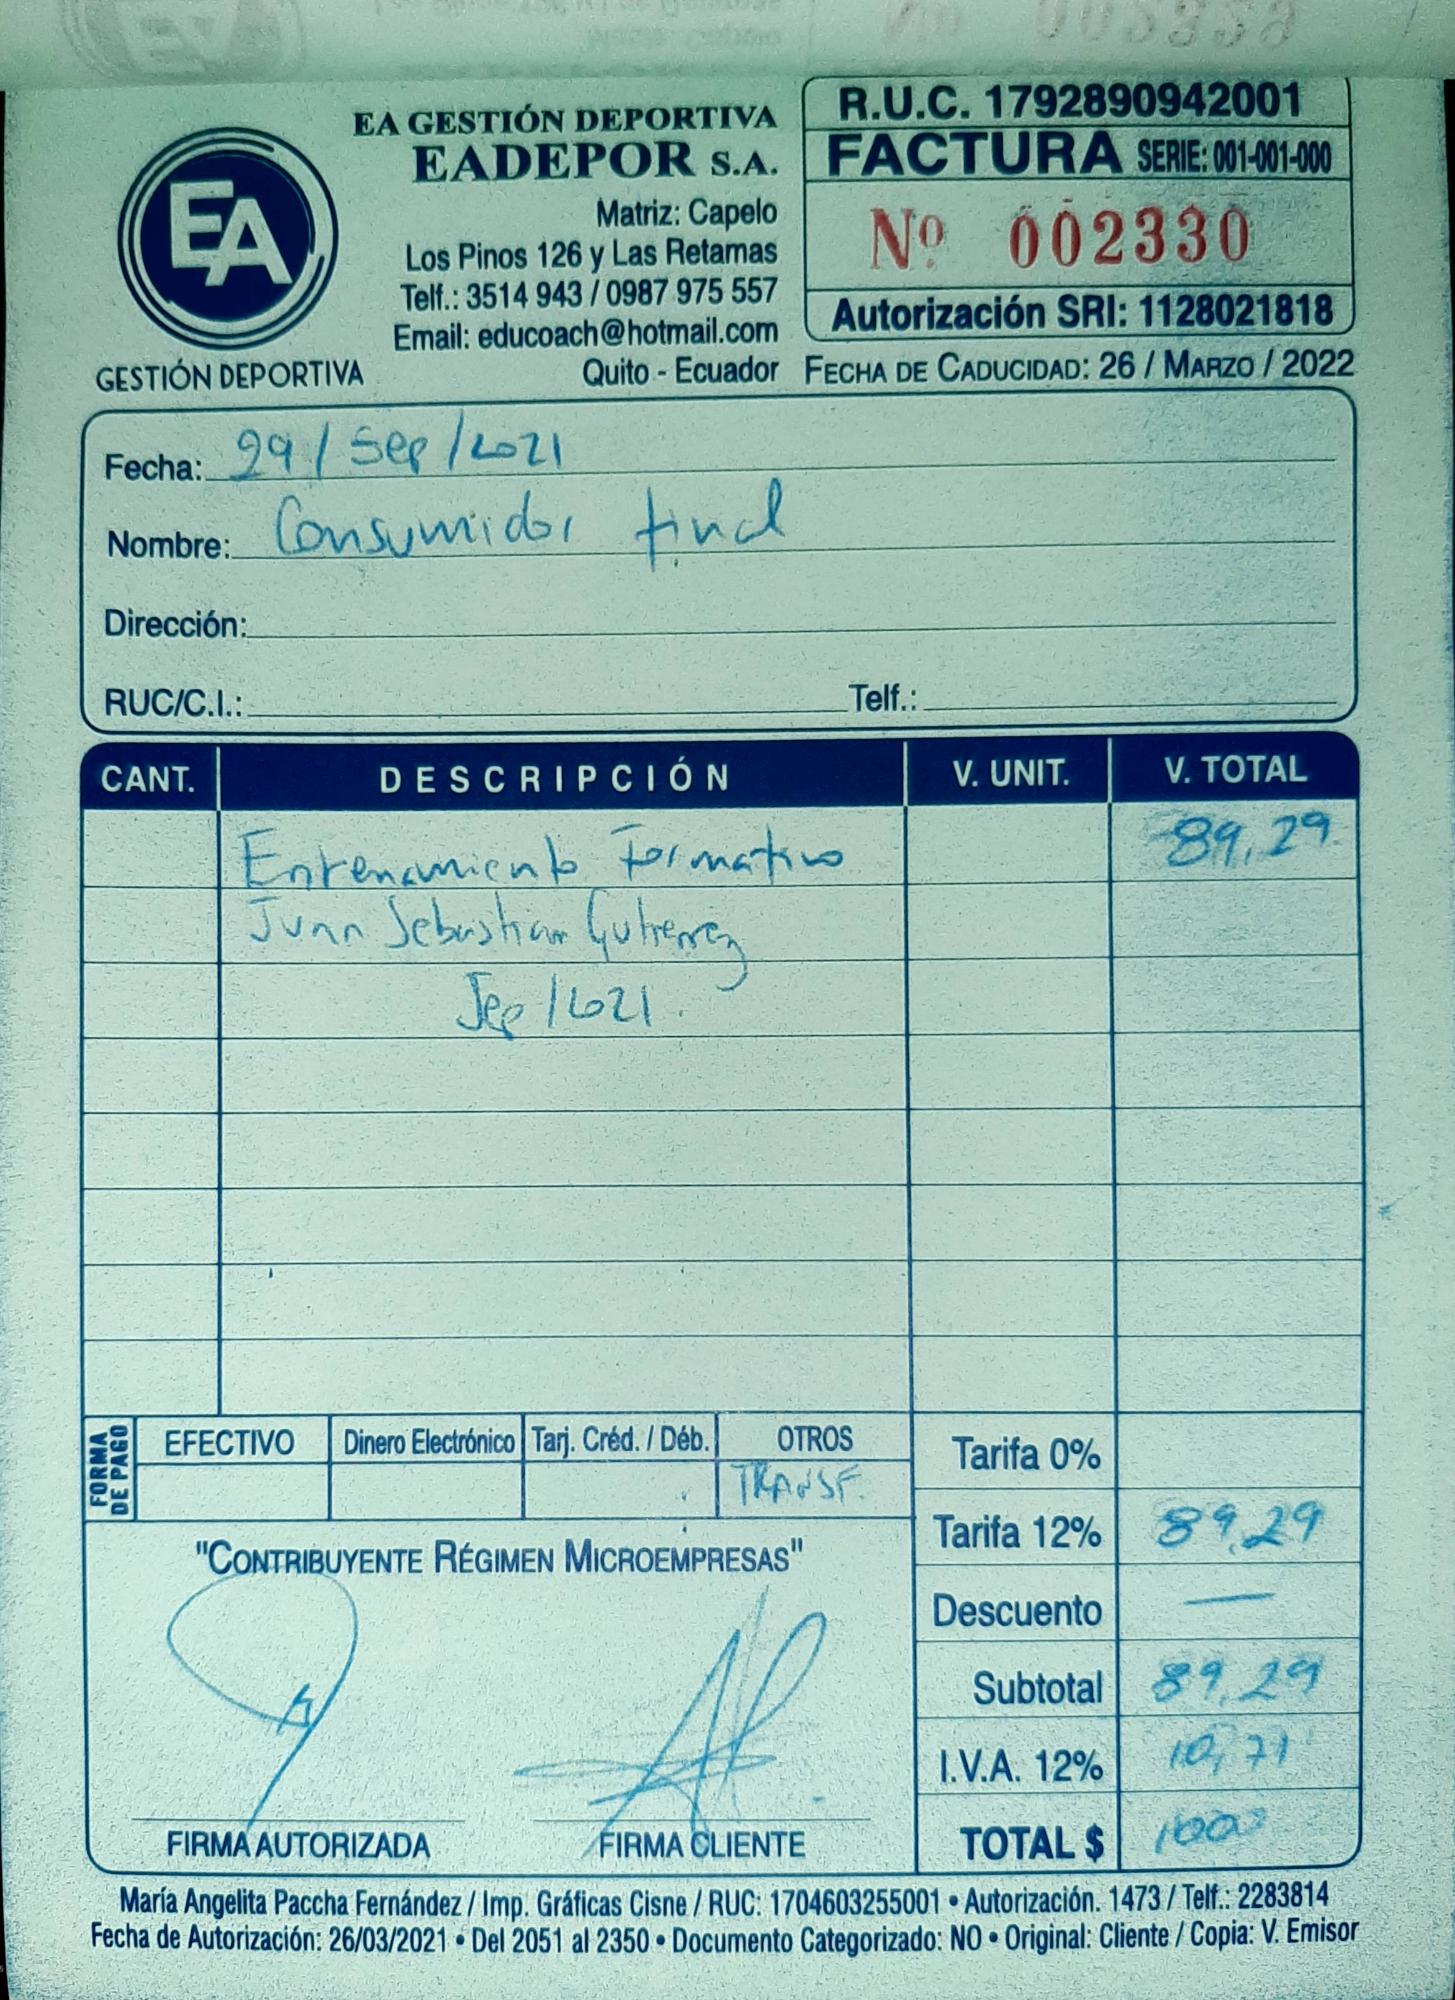 EA GESTIÓN DEPORTIVA
EADEPOR S.A.
Matriz: Capelo
Los Pinos 126 y Las Retamas
Telf.: 3514 943 / 0987 975 557
Email: educoach@hotmail.com
Quito - Ecuador
EA
GESTIÓN DEPORTIVA
R.U.C. 1792890942001
FACTURA SERIE: 001-001-000
Nº 002330
Autorización SRI: 1128021818
FECHA DE CADUCIDAD: 26 / MARZO / 2022
Fecha: 29/Sep/2021
Nombre: Consumidor final
Dirección:
RUC/C.I.: Telf.:
CANT. DESCRIPCIÓN V. UNIT. V. TOTAL
Entrenamiento Formativo 89,29
Juan Sebastian Gutierrez
Sep/2021.
FORMA DE PAGO
EFECTIVO Dinero Electrónico Tarj. Créd. / Déb. OTROS
TRANSF.
Tarifa 0%
Tarifa 12% 89,29
Descuento —
Subtotal 89,29
I.V.A. 12% 10,71
TOTAL $ 100
"CONTRIBUYENTE RÉGIMEN MICROEMPRESAS"
FIRMA AUTORIZADA FIRMA CLIENTE
María Angelita Paccha Fernández / Imp. Gráficas Cisne / RUC: 1704603255001 • Autorización. 1473 / Telf.: 2283814
Fecha de Autorización: 26/03/2021 • Del 2051 al 2350 • Documento Categorizado: NO • Original: Cliente / Copia: V. Emisor